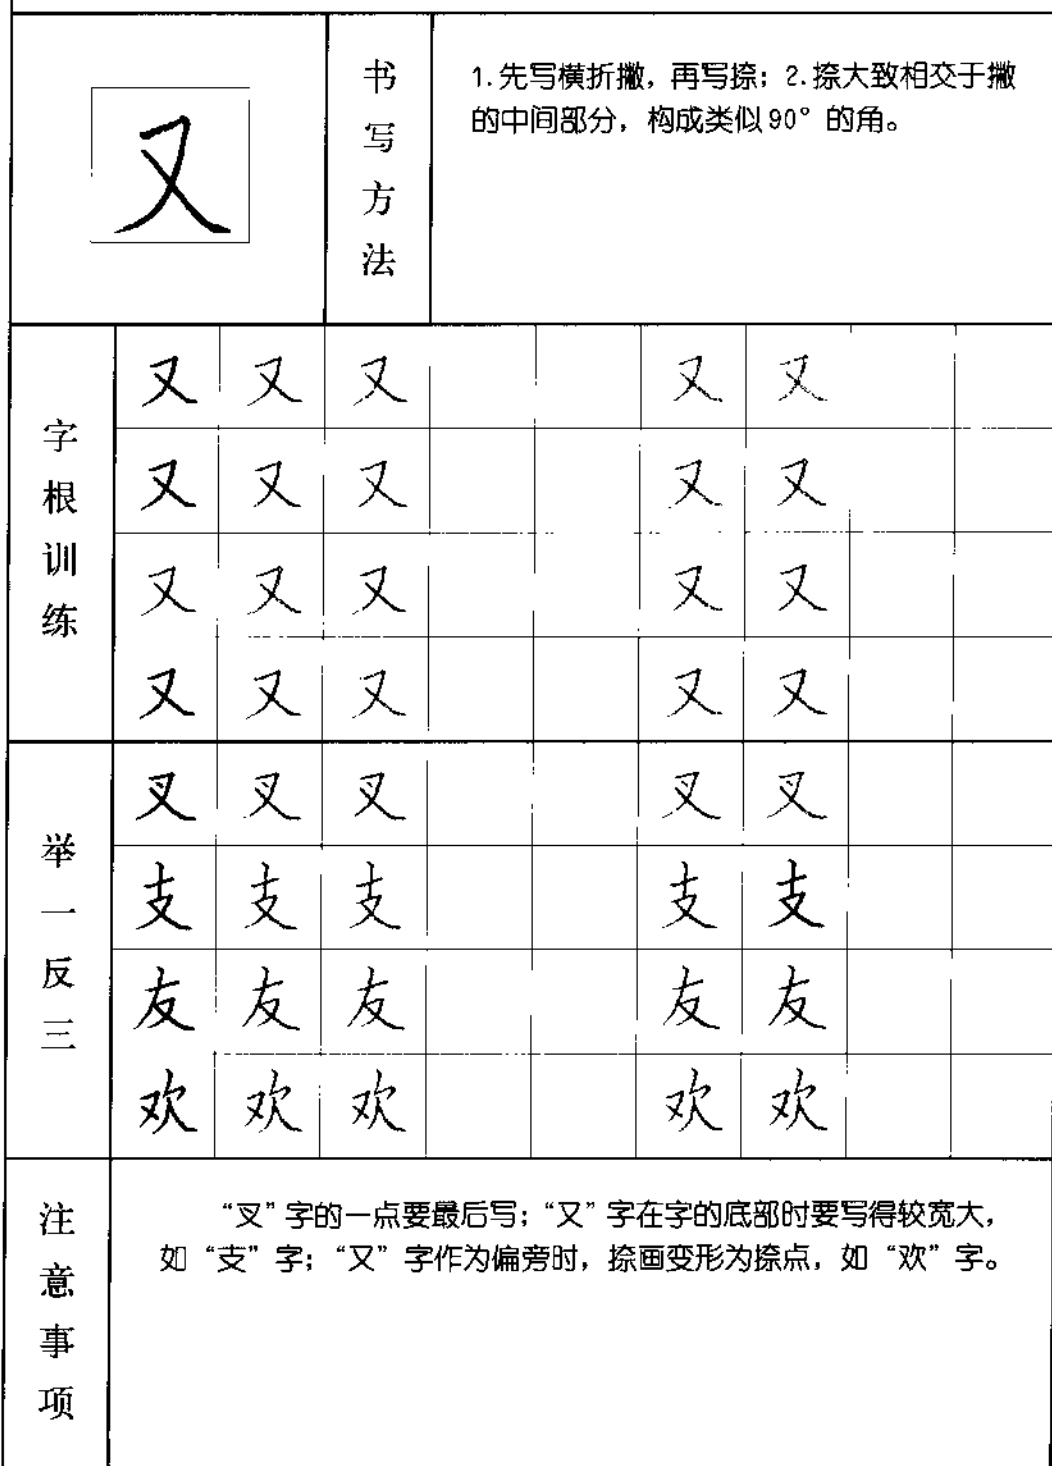 又
书写方法
1.先写横折撇，再写捺；2.捺大致相交于撇
的中间部分，构成类似90°的角。
字根训练
又 又 又 又 又
又 又 又 又 又
又 又 又 又 又
又 又 又 又 又
举一反三
叉 叉 叉 叉 叉
支 支 支 支 支
友 友 友 友 友
欢 欢 欢 欢 欢
注意事项
“叉”字的一点要最后写；“又”字在字的底部时要写得较宽大，
如“支”字；“又”字作为偏旁时，捺画变形为捺点，如“欢”字。